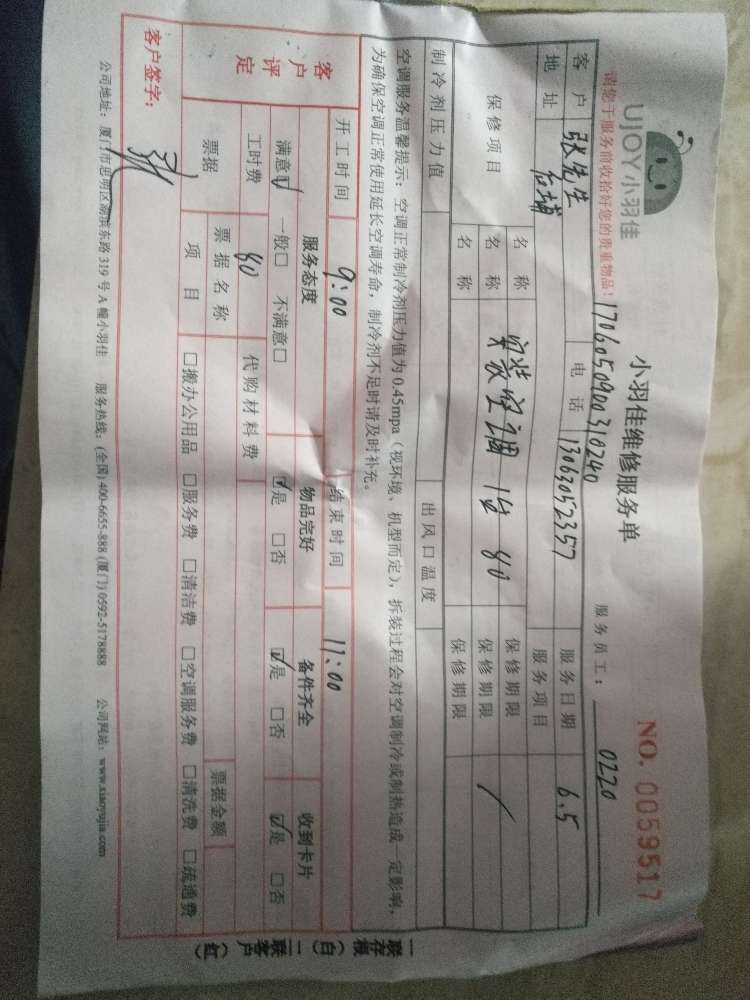 UJOY小羽佳
小羽佳维修服务单
NO. 0059517
请您于服务前收拾好您的贵重物品!
1706050900310240
服务员工: 0220
客户 张先生 电话 13063052357 服务日期 6.5
地址 后埔 服务项目
保修项目 名称 安装空调 1台 80 保修期限
名称 保修期限
名称 保修期限
制冷剂压力值 出风口温度
空调服务温馨提示: 空调正常制冷剂压力值为 0.45mpa (视环境、机型而定), 拆装过程会对空调制冷或制热造成一定影响,
为确保空调正常使用延长空调寿命, 制冷剂不足时请及时补充。
开工时间 9:00 结束时间 11:00
客户评定 服务态度 物品完好 备件齐全 收到卡片
满意☑ 一般□ 不满意□ ☑是 □否 ☑是 □否 ☑是 □否
工时费 80 代购材料费
票据 票据名称 票据金额
项目 □搬办公用品 □服务费 □清洁费 □空调服务费 □清洗费 □疏通费
客户签字:
公司地址: 厦门市思明区湖滨东路 319 号 A 幢小羽佳 服务热线: (全国) 400-6655-888 (厦门) 0592-5178888 公司网站: www.xiaoyujia.com
一联存根(白) 二联客户(红)